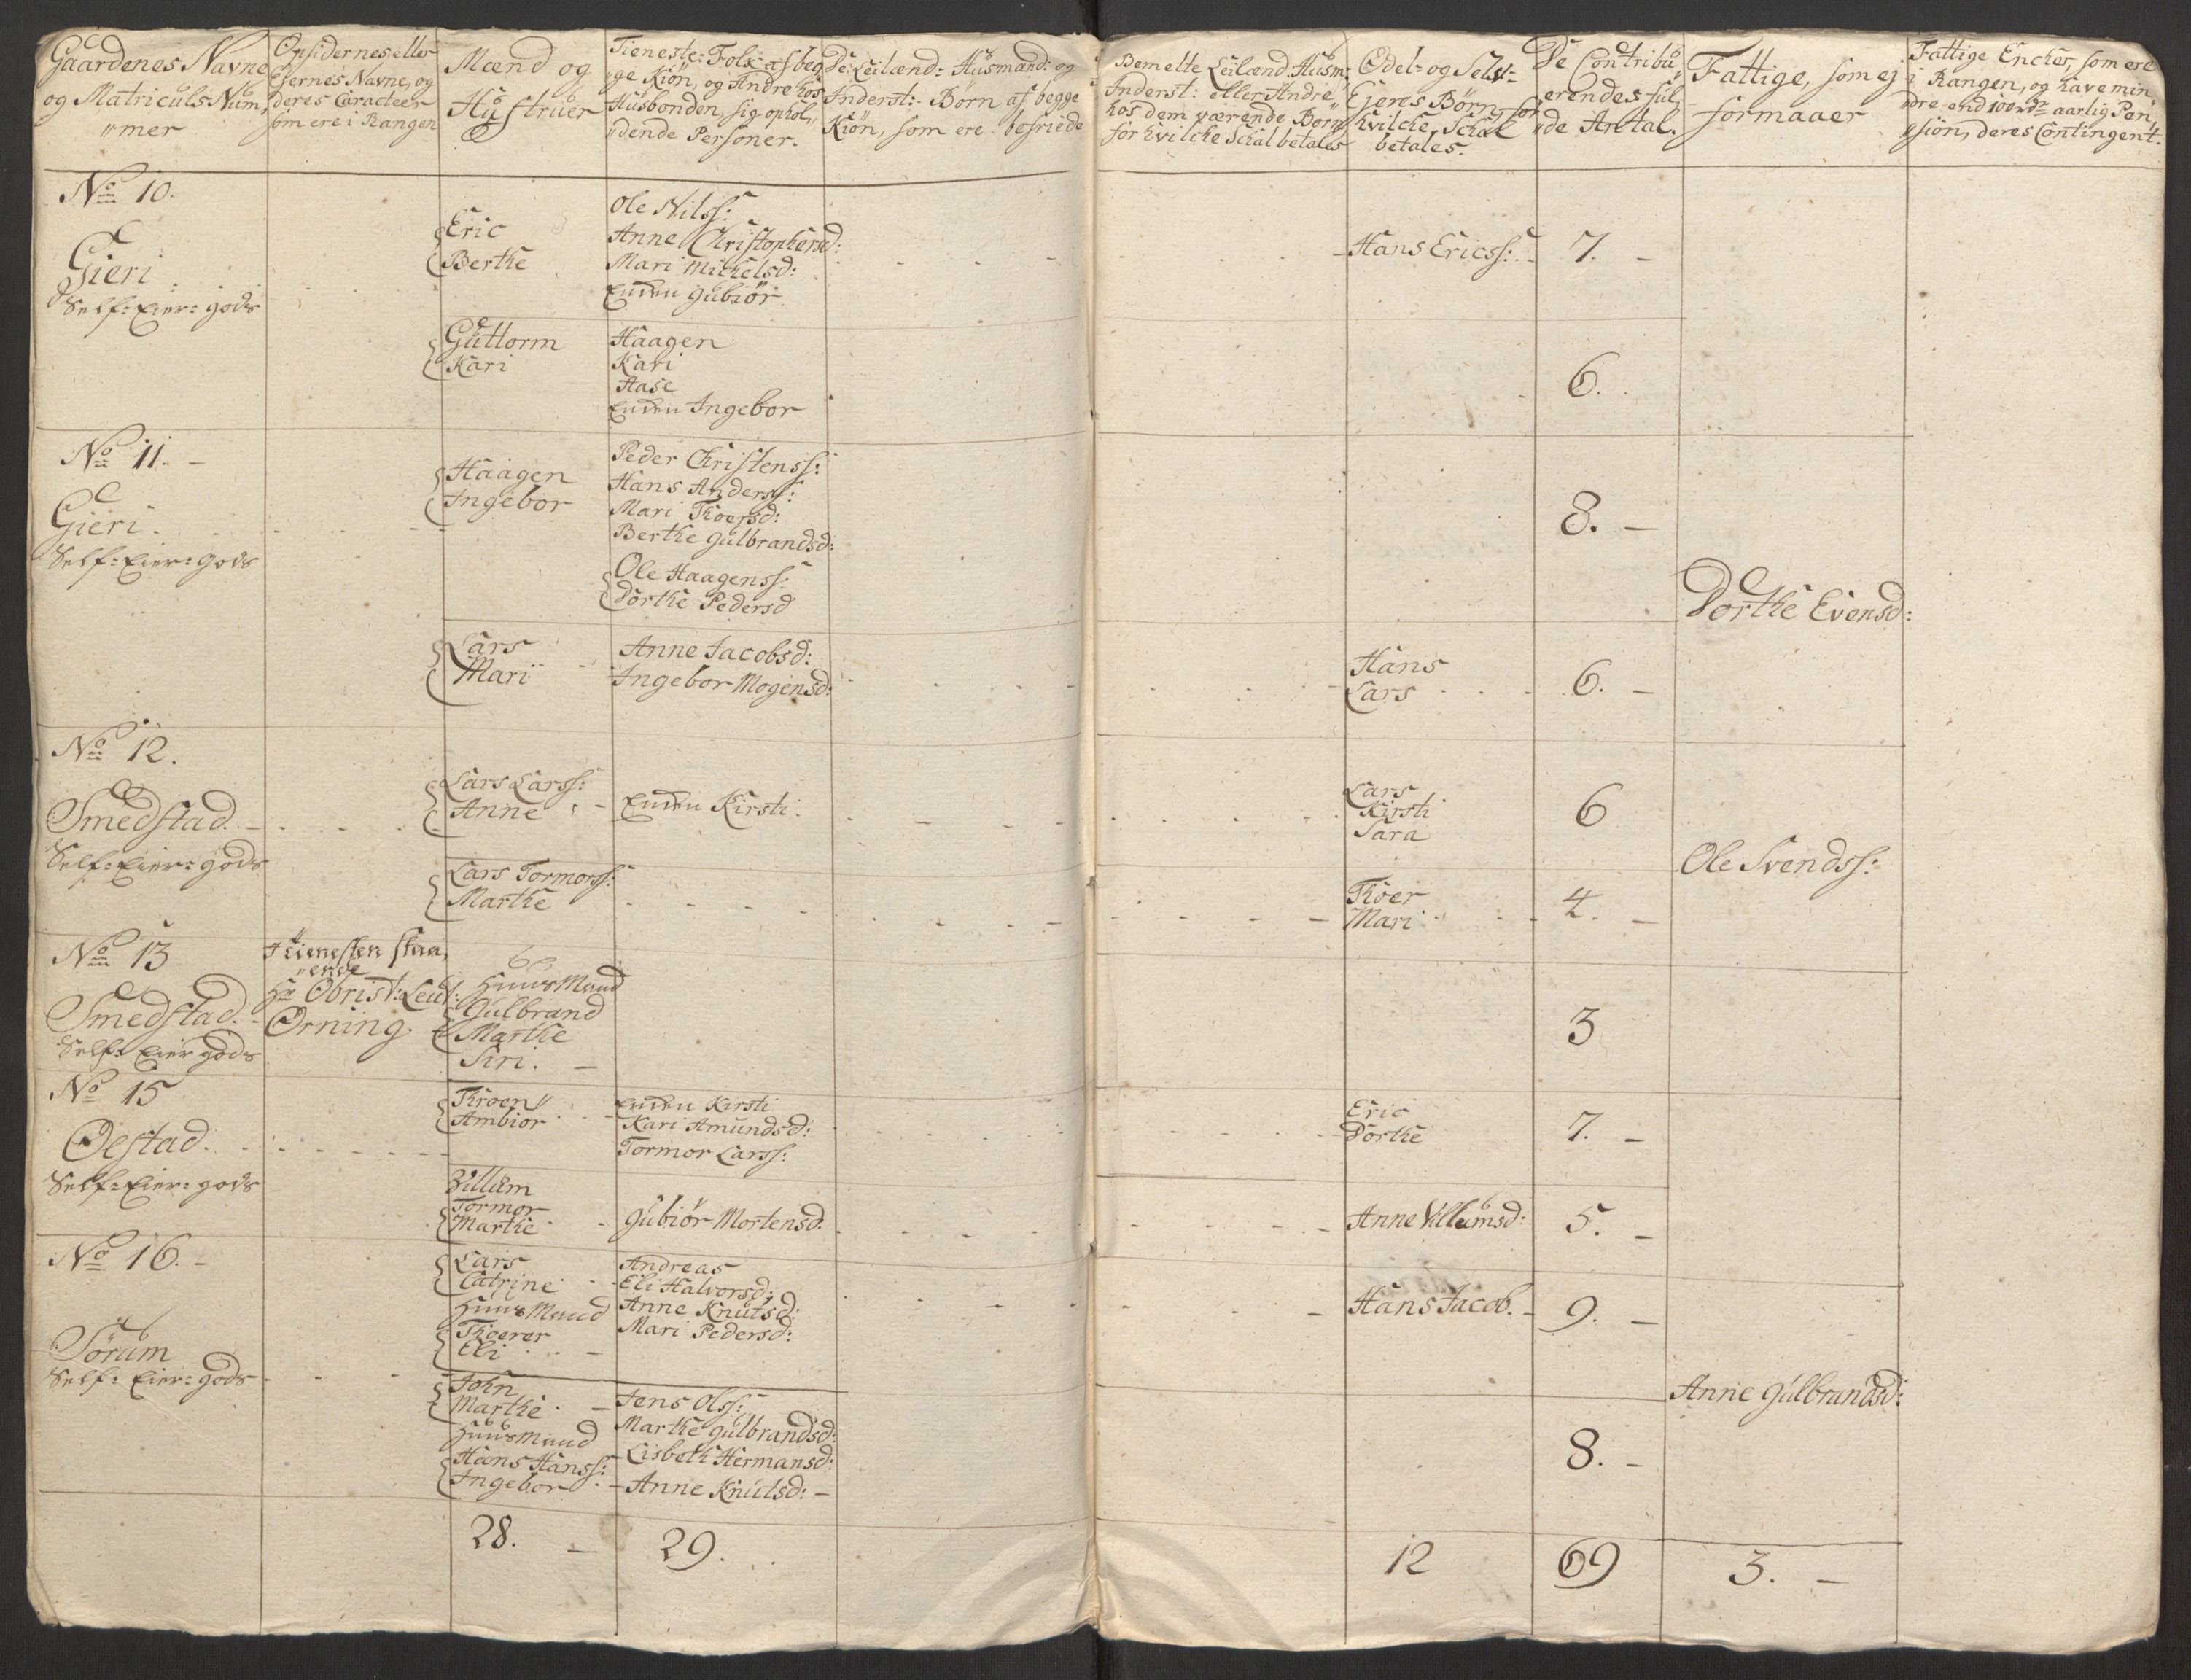 Gaardenes Navne
og Matriculs Num„
„mer
Opsidernes eller
Eyernes Navne, og
deres Caracteer
som ere i Rangen
Mænd og
Hustruer
Tieneste-Folk af beg
„ge Kiön, og Andre hos
Husbonden, sig ophol„
„dende Personer.
De Leilænd: Husmænd: og
Inderst:- Börn af begge
Kiön, som ere befriede
Bemelte Leilænd. Husm:
Inderst: eller Andre
hos dem værende Börn
for hvilcke Skal betales
Odel- og Selv-
Ejeres Börn, for
hvilcke, Skal
betales.
De Contribu
„erendes ful
„de Antal.
Fattige, som ej
formaaer
Fattige Encker, som ere
i Rangen, og have min„
„dre end 100 rdr aarlig Pen„
„sion, deres Contingent.
No 10.
Gieri
Self-Eier-gods
Eric
Berthe
Ole Nilss:
Anne Christophersd:
Mari Michelsd:
Encken Gubiör
Hans Ericss:
7.
Guttorm
Kari
Haagen
Kari
Aase
Encken Ingebor
6.
No 11.
Gieri.
Self-Eier-Gods
Haagen
Ingebor
Peder Christenss:
Hans Anderss:
Mari Thoersd:
Berthe Gulbrandsd:
Ole Haagenss:
Dorthe Pedersd
8.
Dorthe Evensd:
Lars
Mari
Anne Jacobsd:
Ingebor Mogensd:
Hans
Lars
6.
No 12.
Smedstad.
Self-Eier-gods
Lars Larss:
Anne
Encken Kirsti.
Lars
Kirsti
Sara
6
Ole Svendss:
Lars Tormorss:
Marthe
Thoer
Mari
4.
No 13
Smedstad.
Self-Eier gods
I Tienesten staa„
„ende
Hr Obrist: Leut:
Örning.
Huus Mand
Gulbrand
Marthe
Siri.
3
No 15
Oestad.
Self-Eier-gods
Throen
Ambior
Encken Kirsti
Kari Amundsd:
Tormor Larss:
Eric
Dorthe
7.
Villum
Tormor
Marthe
Gubiör Mortensd.
Anne Villumsd:
5.
No 16.
Sörum
Self-Eier-gods
Lars
Catrine
Huus Mand
Thoerer
Eli
Andreas
Eli Halvorsd:
Anne Knutsd:
Mari Pedersd:
Hans Jacob.
9.
John
Marthe
Huus Mand
Hans Hanss:
Ingebor
Jens Olss:
Marthe Gulbrandsd:
Lisbeth Hermansd:
Anne Knutsd:
8.
Anne Gulbrandsd:
28.
29.
12
69
3.